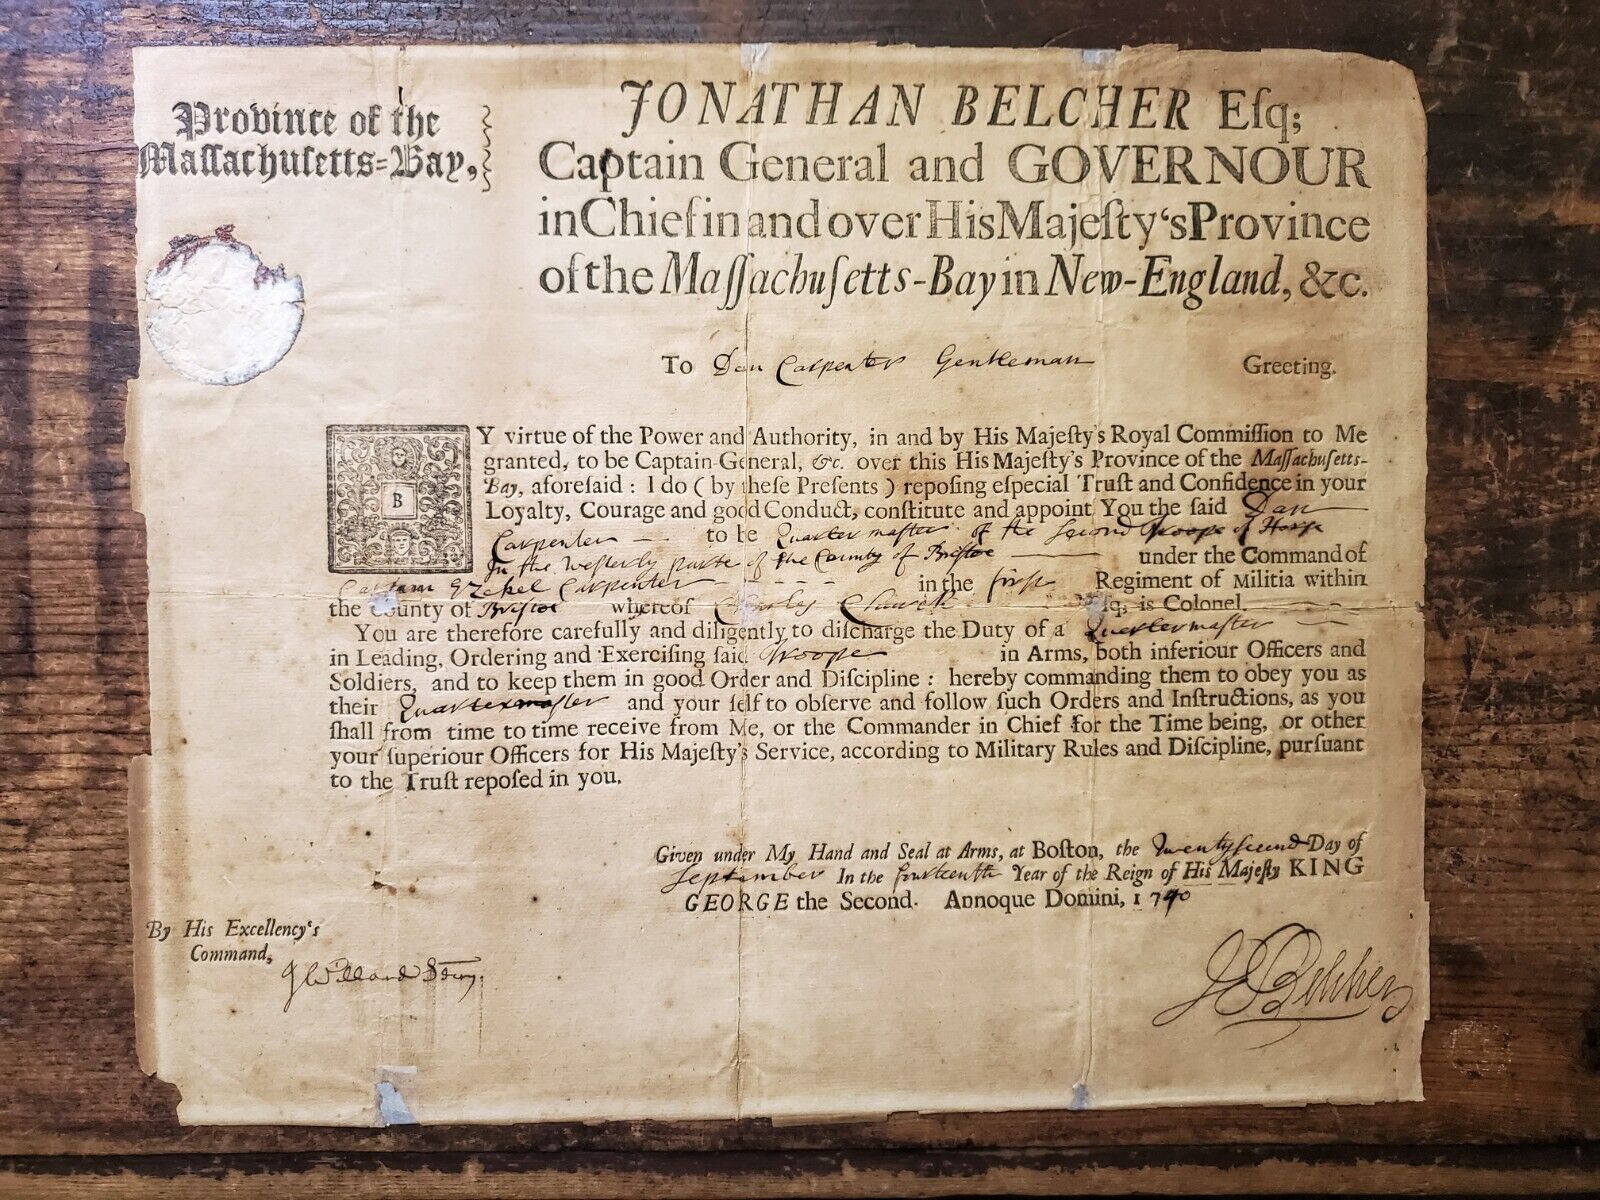 Province of the
Maſſachuſetts=Bay,
JONATHAN BELCHER Eſq;
Captain General and GOVERNOUR
in Chief in and over His Majeſty‘s Province
of the Maſſachuſetts-Bay in New-England, &c.
To Dan Carpenter Gentleman Greeting.
BY virtue of the Power and Authority, in and by His Majeſty's Royal Commiſſion to Me
granted, to be Captain-General, &c. over this His Majeſty's Province of the Maſſachuſetts-
Bay, aforeſaid : I do ( by theſe Preſents ) repoſing eſpecial Truſt and Confidence in your
Loyalty, Courage and good Conduct, conſtitute and appoint You the ſaid Dan
Carpenter — to be Quartermaster of the Second Troope of Horse
In the Westerly parte of the County of Bristoe — under the Command of
Captain Ezekel Carpenter - - - - - in the first Regiment of Militia within
the County of Bristoe whereof Charles Church Eſq; is Colonel.
You are therefore carefully and diligently to diſcharge the Duty of a Quartermaster —
in Leading, Ordering and Exerciſing ſaid Troope in Arms, both inferiour Officers and
Soldiers, and to keep them in good Order and Diſcipline : hereby commanding them to obey you as
their Quartermaſter and your ſelf to obſerve and follow ſuch Orders and Inſtructions, as you
ſhall from time to time receive from Me, or the Commander in Chief for the Time being, or other
your ſuperiour Officers for His Majeſty's Service, according to Military Rules and Diſcipline, purſuant
to the Truſt repoſed in you.
Given under My Hand and Seal at Arms, at Boſton, the Twenty second Day of
September In the fourteenth Year of the Reign of His Majeſty KING
GEORGE the Second. Annoque Domini, 1740
By His Excellency's
Command,
J Willard Secry.
J Belcher